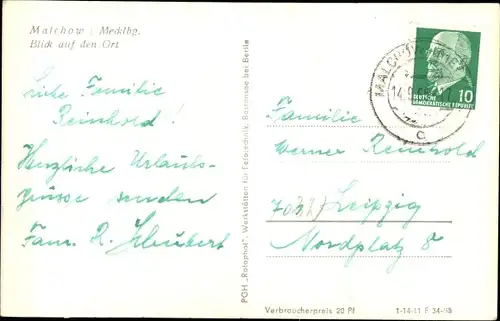 Malchow i Mecklbg.
Blick auf den Ort
Liebe Familie
Reinhold!
Herzliche Urlaubs-
grüsse senden
Fam. R. Schubert
PGH „Rotophot“, Werkstätten für Fototechnik, Bestensee bei Berlin
MALCHOW
14.9.
c
10
DEUTSCHE
DEMOKRATISCHE REPUBLIK
Familie
Werner Reinhold
Leipzig
Nordplatz 8
Verbraucherpreis 20 Pf
1-14-11 F 34/